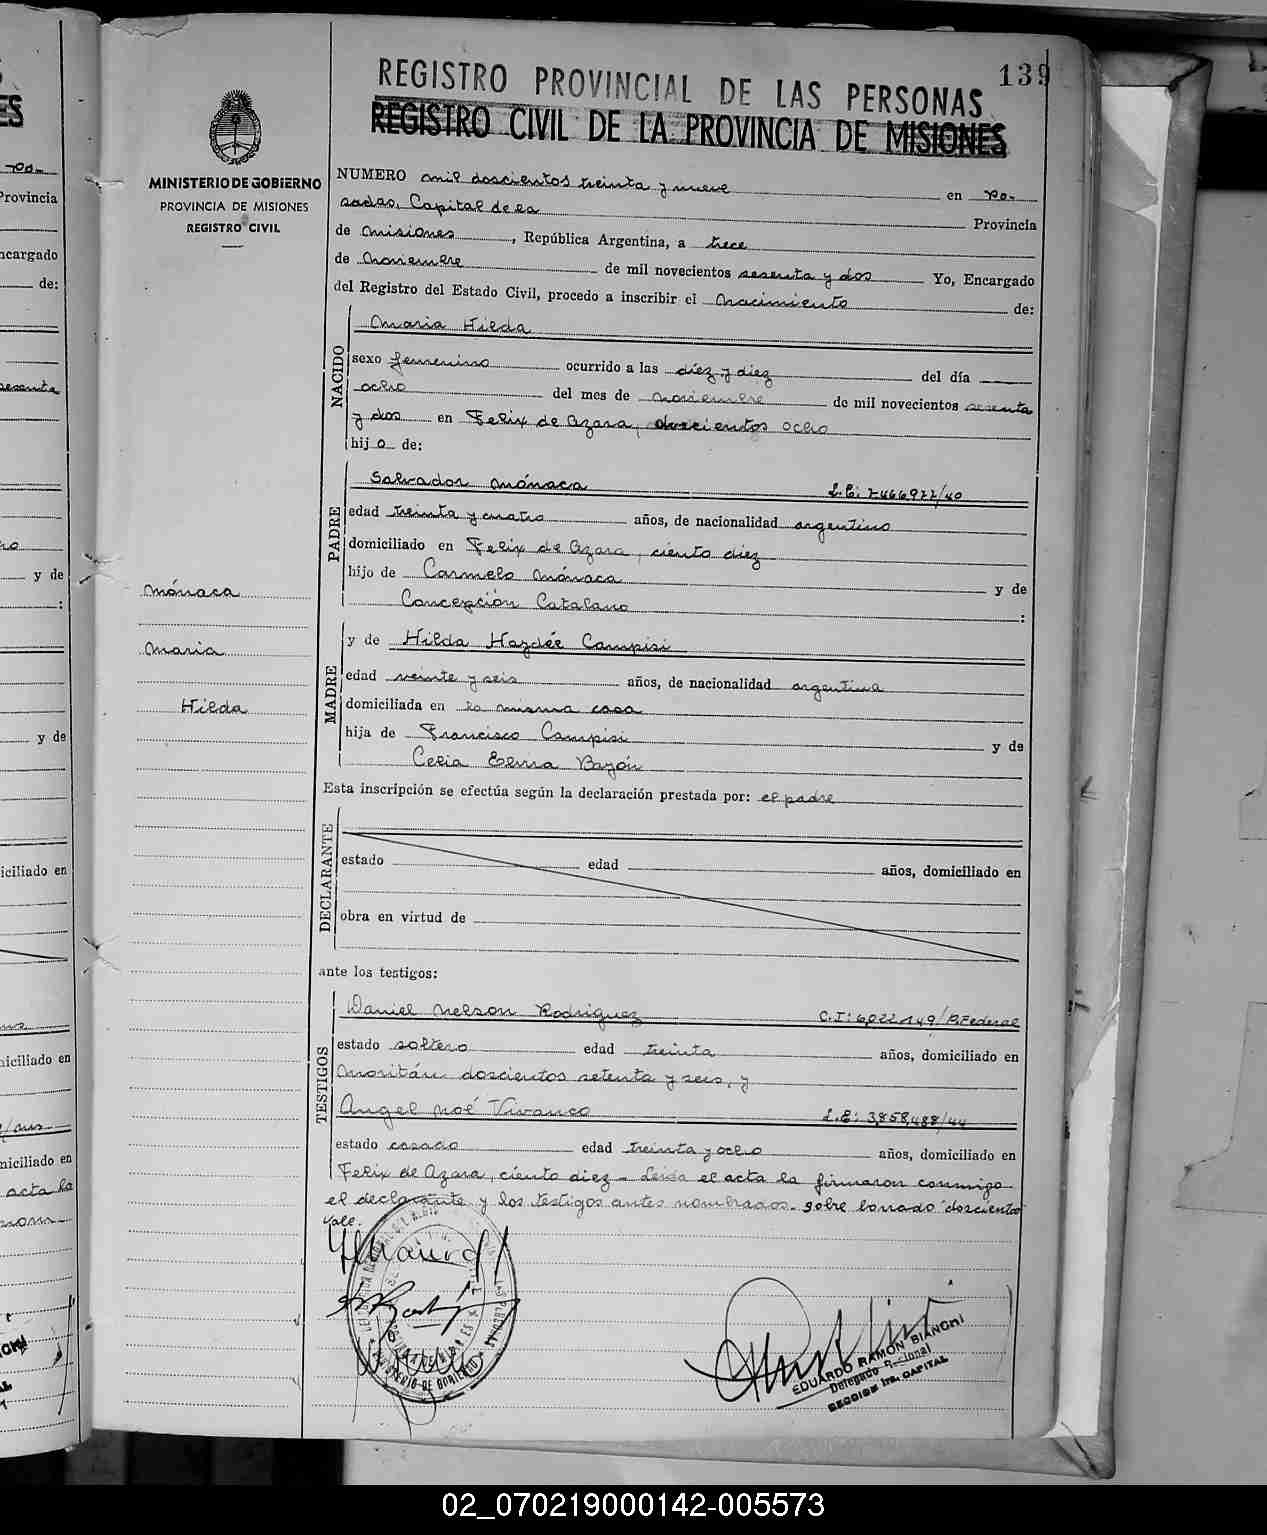 139
REGISTRO PROVINCIAL DE LAS PERSONAS
REGISTRO CIVIL DE LA PROVINCIA DE MISIONES
MINISTERIO DE GOBIERNO
PROVINCIA DE MISIONES
REGISTRO CIVIL
NUMERO mil doscientos treinta y nueve en Po-
sadas, Capital de la Provincia
de Misiones, República Argentina, a trece
de Noviembre de mil novecientos sesenta y dos Yo, Encargado
del Registro del Estado Civil, procedo a inscribir el Nacimiento de:
NACIDO
Maria Hilda
sexo femenino ocurrido a las diez y diez del día
ocho del mes de noviembre de mil novecientos sesenta
y dos en Felix de Azara, doscientos ocho
hij a de:
PADRE
Salvador Mónaca L.E: 7466922/40
edad treinta y cuatro años, de nacionalidad argentino
domiciliado en Felix de Azara, ciento diez
hijo de Carmelo Mónaca y de
Concepción Catalano :
Mónaca
Maria
Hilda
MADRE
y de Hilda Haydée Campisi
edad veinte y seis años, de nacionalidad argentina
domiciliada en la misma casa
hija de Francisco Campisi y de
Celia Elena Bazán
Esta inscripción se efectúa según la declaración prestada por: el padre
DECLARANTE
estado edad años, domiciliado en
obra en virtud de
ante los testigos:
TESTIGOS
Daniel Nelson Rodriguez C.I: 6,022,149/P.Federal
estado soltero edad treinta años, domiciliado en
Moritán doscientos setenta y seis, y
Angel Noé Vivanco L.E: 3,858,488/44
estado casado edad treinta y ocho años, domiciliado en
Felix de Azara, ciento diez - Leida el acta la firmaron conmigo
el declarante y los testigos antes nombrados. sobre borrado "doscientos"
vale.
EDUARDO RAMON BIANCHI
Delegado Regional
SECCION 1ra. CAPITAL
02_070219000142-005573